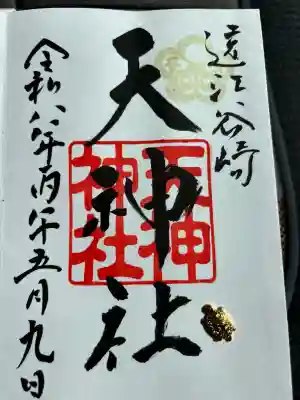 遠江谷崎
天神社
天神
神社
令和八年丙午五月九日